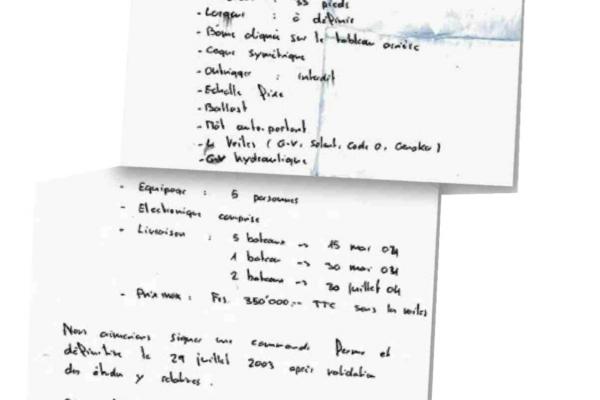 : 35 pieds
- Largeur : à définir
- Bôme alignée sur le tableau arrière
- Coque symétrique
- Outrigger : interdit
- Echelle fixe
- Ballast
- Mât auto-portant
- 4 Voiles ( G-V, Solent, Code 0, Genaker )
- G-V hydraulique
- Equipage : 5 personnes
- Electronique comprise
- Livraison : 5 bateaux -> 15 mai 04
1 bateau -> 30 mai 04
2 bateaux -> 30 juillet 04
- Prix max : Frs. 350'000.-- TTC sans les voiles
Nous aimerions signer une commande ferme et
définitive le 29 juillet 2003 après validation
des études y relatives .